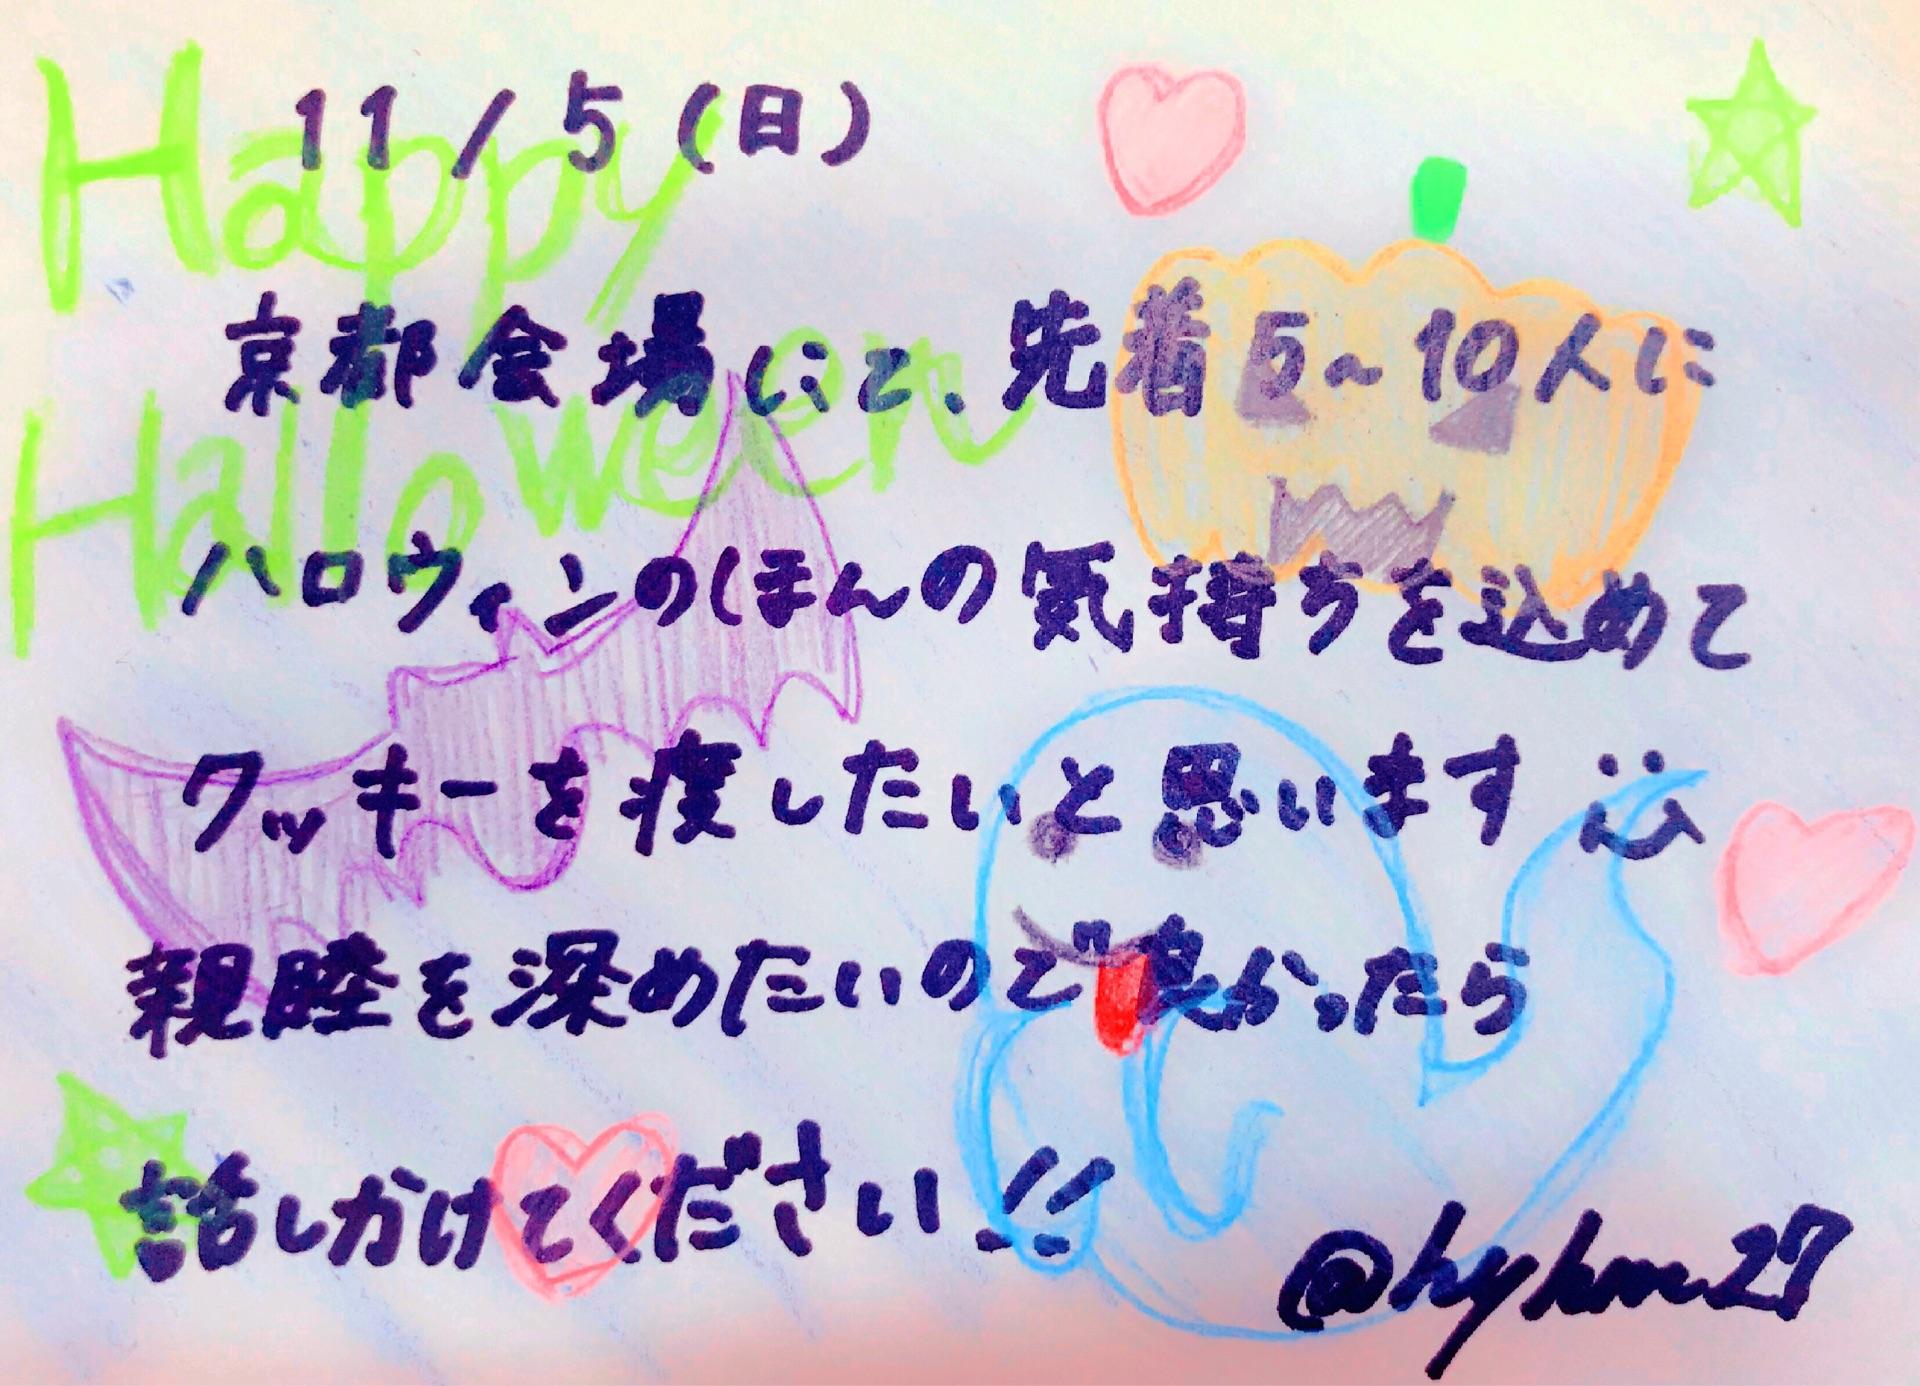 Happy
Halloween
11/5(日)
京都会場にて、先着5~10人に
ハロウィンのほんの気持ちを込めて
クッキーを渡したいと思います
親睦を深めたいので良かったら
話しかけてください!!
@hyhm27